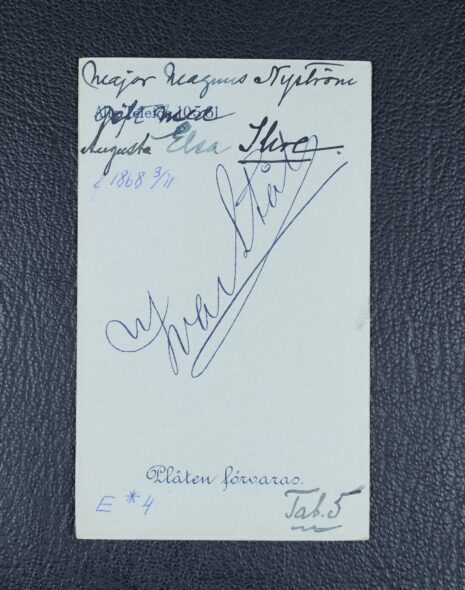 Major Magnus Nyström
Allm. Telef. 105 81
gift med
Augusta Elsa Ihre.
f. 1868 3/11
Ivar Stål
Plåten förvaras.
E *4
Tab. 5